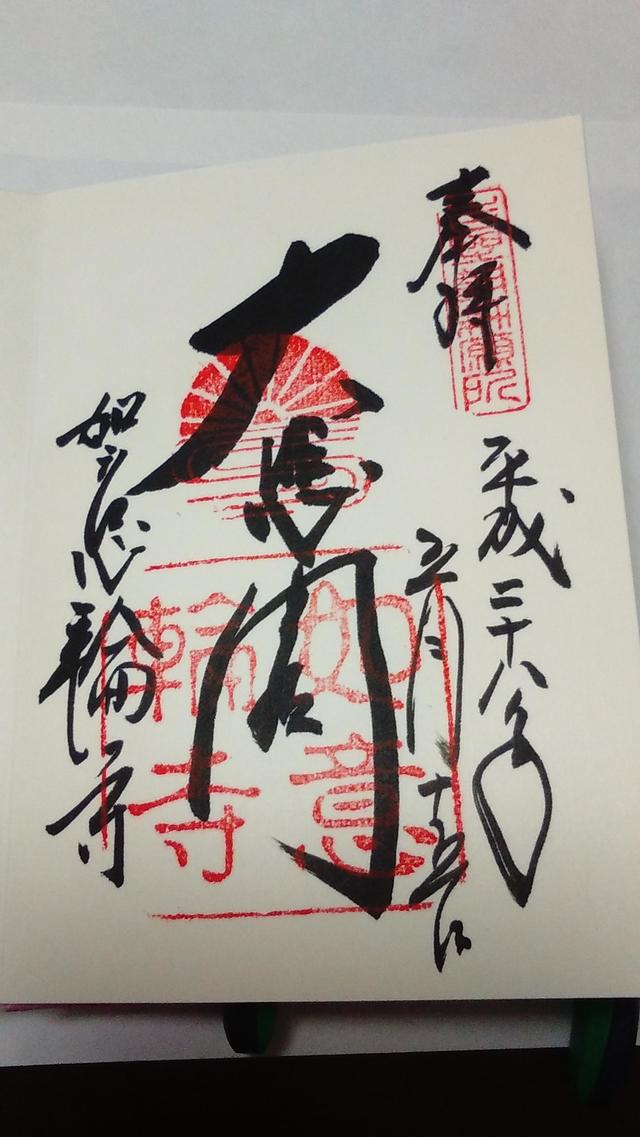 奉拝
平成二十八年
五月十五日
大悲閣
如意
輪寺
如意輪寺